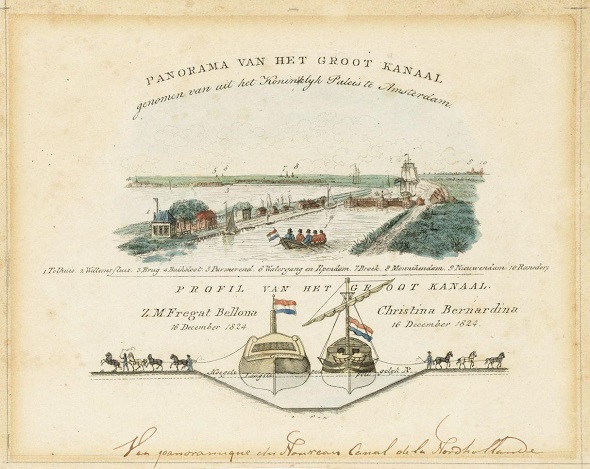 PANORAMA VAN HET GROOT KANAAL
genomen van uit het Koninklyk Paleis te Amsterdam.
1 Tolhuis. 2 Willems sluis. 3 Brug. 4 Buiksloot. 5 Purmerend. 6 Watergang en Ilpendam. 7 Broek. 8 Monnikendam. 9 Nieuwendam. 10 Ransdorp.
PROFIL VAN HET GROOT KANAAL.
Z.M. Fregat Bellona
16 December 1824.
Christina Bernardina
16 December 1824.
Vue panoramique du Nouveau Canal de la Nordhollande